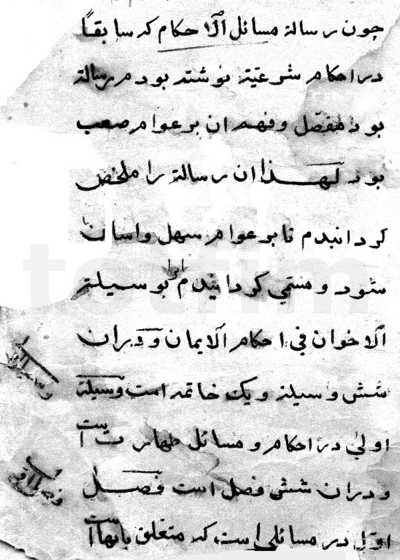 چون رسالهٔ مسائل الاحکام که سابقاً
در احکام شرعیّة نوشته بودم رسالهٔ
بود مفصّل و فهم ان بر عوام صعب
بود لهذا ان رسالهٔ را ملخص
کردانیدم تا بر عوام سهل و اسان
شود و مسمّی کردانیدم بوسیلهٔ
الاخوان فی احکام الایمان و دران
شش وسیلة و یک خاتمه است وسیلهٔ
اولی در احکام و مسائل طهارتست
و دران شش فصل است فصل
اوّل در مسائلی است که متعلق بابها است